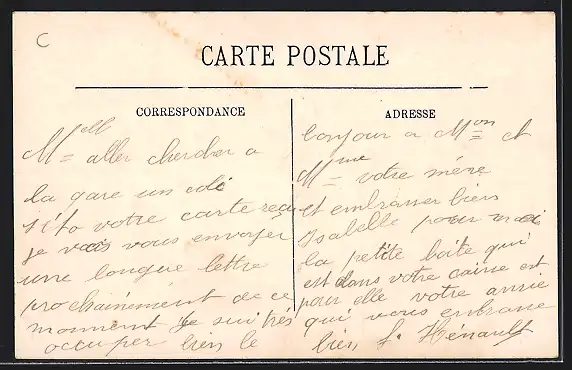 C
CARTE POSTALE
CORRESPONDANCE
Mell aller chercher a
la gare un coli
sito votre carte reçu
je vais vous envoyer
une longue lettre
prochainement de ce
momment je suit tres
occuper bien le
ADRESSE
bonjour a Mon et
Mme votre mère
et embrasser bien
Isabelle pour moi
la petite boite qui
est dans votre caisse est
pour elle votre amie
qui vous embrasse
bien J. Hénault